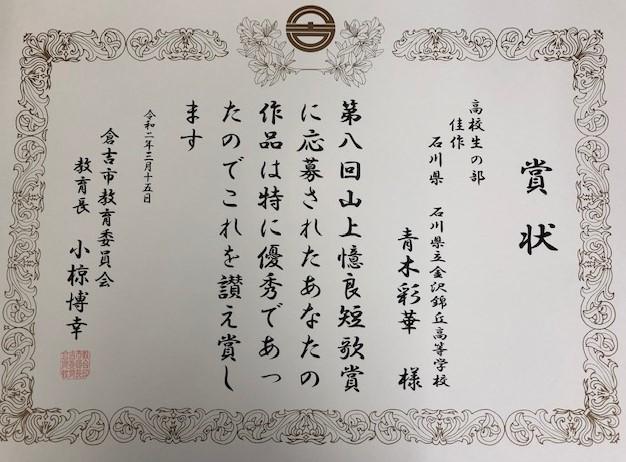 賞状
高校生の部
佳作
石川県 石川県立金沢錦丘高等学校
青木彩華 様
第八回山上憶良短歌賞
に応募されたあなたの
作品は特に優秀であっ
たのでこれを讃え賞し
ます
令和二年三月十五日
倉吉市教育委員会
教育長 小椋博幸